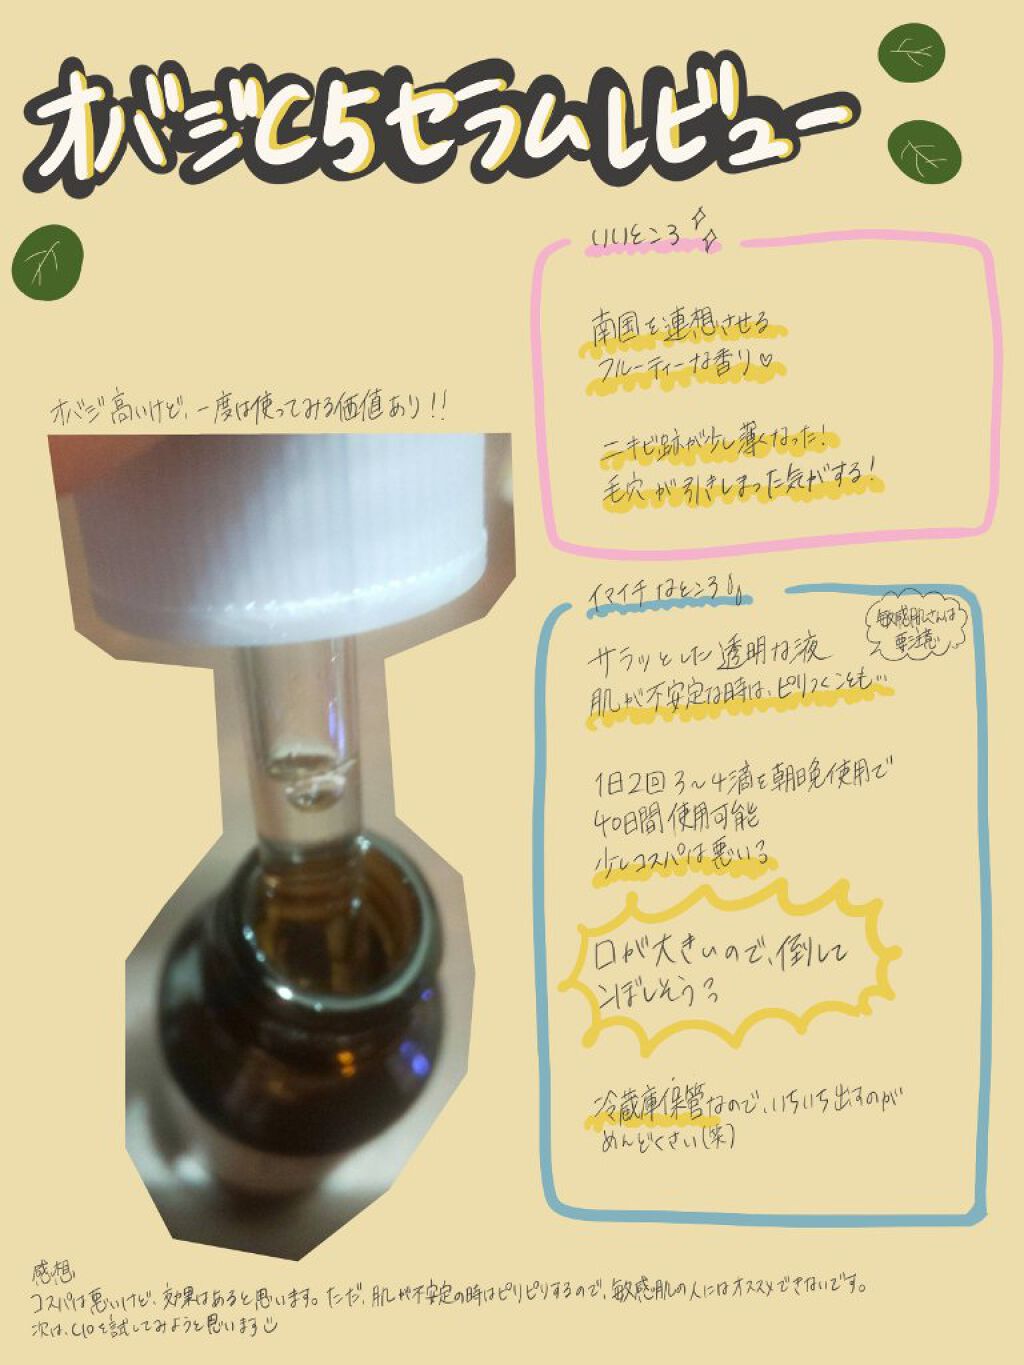 オバジC5セラムレビュー
オバジ高いけど、一度は使ってみる価値あり!!
いいところ
南国を連想させる
フルーティーな香り♡
ニキビ跡が少し薄くなった!
毛穴が引きしまった気がする!
イマイチなところ
敏感肌さんは
要注意
サラッとした透明な液
肌が不安定な時は、ピリつくことも…
1日2回3~4滴を朝晩使用で
40日間使用可能
少しコスパは悪い
口が大きいので、倒して
こぼしそう
冷蔵庫保管なので、いちいち出すのが
めんどくさい(笑)
感想
コスパは悪いけど、効果はあると思います。ただ、肌が不安定の時はピリピリするので、敏感肌の人にはオススメできないです。
次は、C10を試してみようと思います